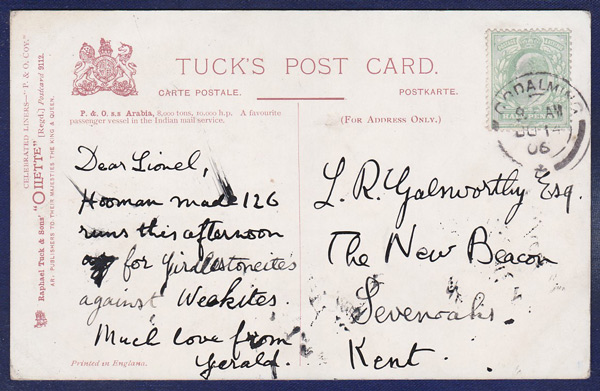 TUCK'S POST CARD.
CARTE POSTALE.
POSTKARTE.
P. & O. s.s Arabia, 8,000 tons, 10,000 h.p. A favourite
passenger vessel in the Indian mail service.
(FOR ADDRESS ONLY.)
CELEBRATED LINERS—"P. & O. COY."
"OILETTE" [Regd.] Postcard 9112.
Raphael Tuck & Sons'
ART PUBLISHERS TO THEIR MAJESTIES THE KING & QUEEN.
Dear Lionel,
Hooman made 126
runs this afternoon
for Girdlestoneites
against Weekites.
Much love from
Gerald.
Printed in England.
HALFPENNY
GODALMING
AM
06
L. R. Galsworthy Esq.
The New Beacon
Sevenoaks.
Kent.